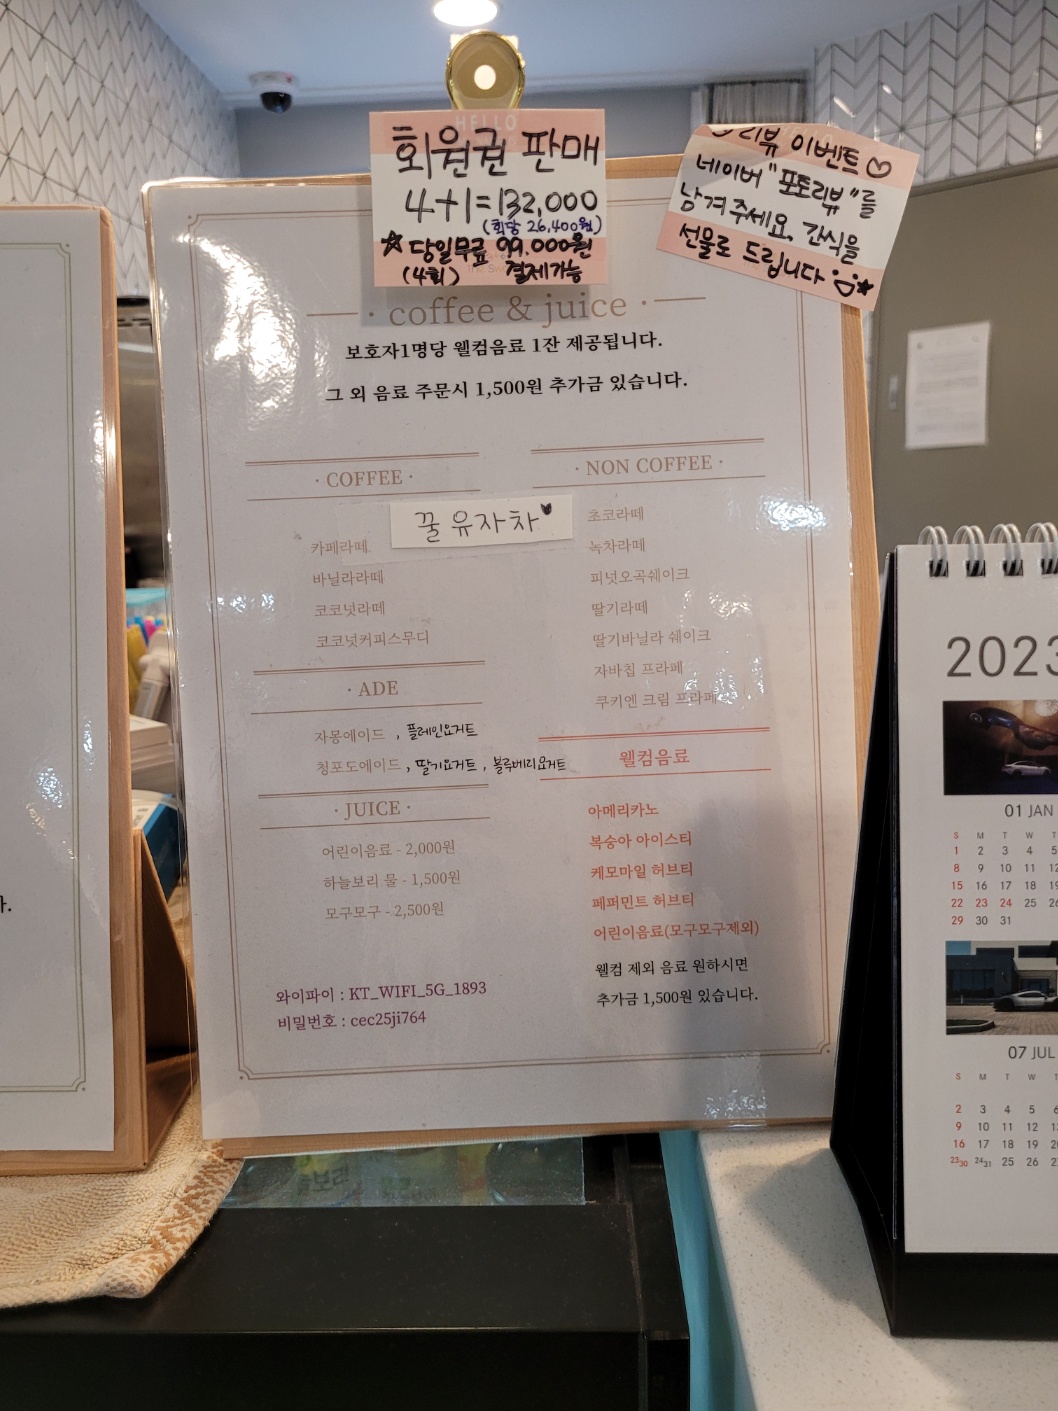 HELLO
회원권 판매
4+1=132,000
(회당 26,400원)
☆당일무료 99.000원
(4회) 결제가능
리뷰 이벤트♡
네이버 "포토리뷰"를
남겨주세요. 간식을
선물로 드립니다
· coffee & juice ·
보호자1명당 웰컴음료 1잔 제공됩니다.
그 외 음료 주문시 1,500원 추가금 있습니다.
· COFFEE ·
꿀 유자차
카페라떼
바닐라라떼
코코넛라떼
코코넛커피스무디
· ADE
자몽에이드 , 플레인요거트
청포도에이드 , 딸기요거트 , 블루베리요거트
· JUICE ·
어린이음료 - 2,000원
하늘보리 물 - 1,500원
모구모구 - 2,500원
와이파이 : KT_WIFI_5G_1893
비밀번호 : cec25ji764
· NON COFFEE ·
초코라떼
녹차라떼
피넛오곡쉐이크
딸기라떼
딸기바닐라 쉐이크
자바칩 프라페
쿠키엔 크림 프라페
웰컴음료
아메리카노
복숭아 아이스티
케모마일 허브티
페퍼민트 허브티
어린이음료(모구모구제외)
웰컴 제외 음료 원하시면
추가금 1,500원 있습니다.
2023
01 JAN
S M T W T
1 2 3 4 5
8 9 10 11 12
15 16 17 18 19
22 23 24 25 26
29 30 31
07 JUL
S M T W T
2 3 4 5
9 10 11 12 13
16 17 18 19 20
23/30 24/31 25 26